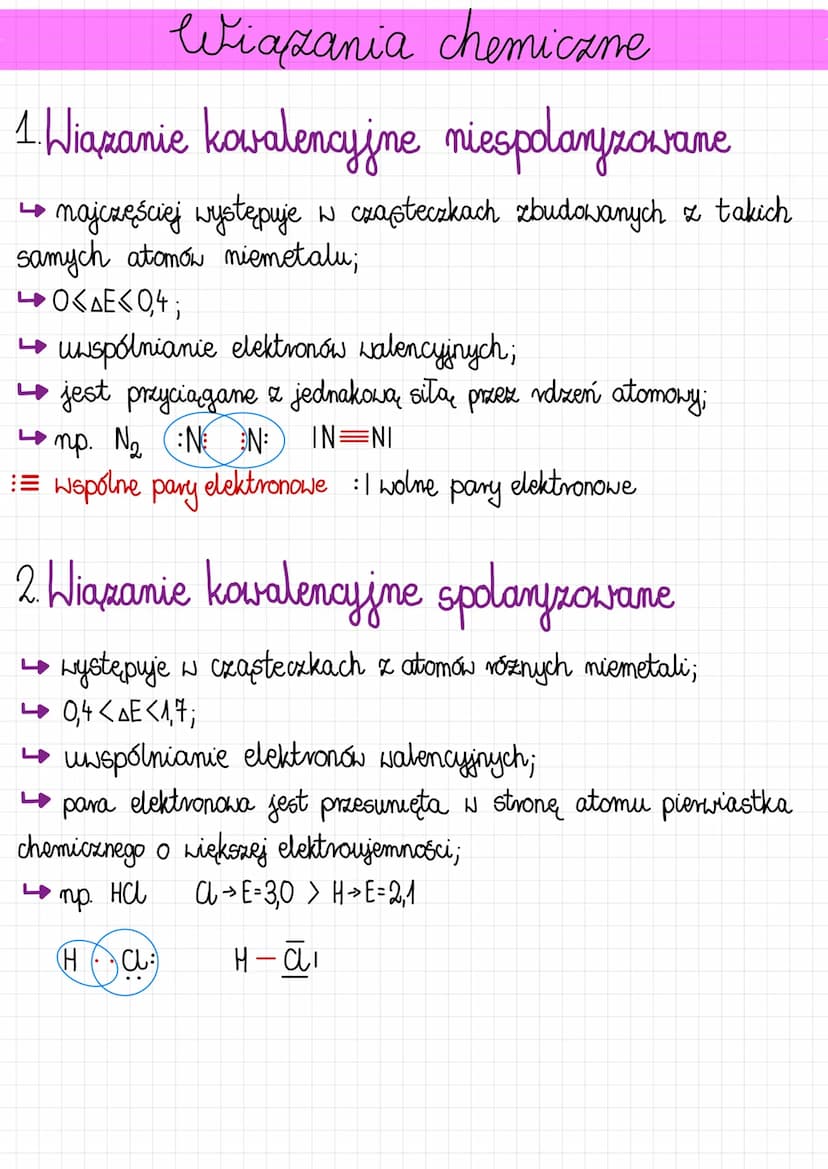 Wiązania chemiczne
1. Wiązanie kowalencyjne niespolaryzowane
↳ najczęściej występuje w cząsteczkach zbudowanych z takich
samych atomów niemetalu;
↳ 0⩽ΔE⩽0,4;
↳ uwspólnianie elektronów walencyjnych;
↳ jest przyciągane z jednakową siłą przez rdzeń atomowy;
↳ np. N₂ :N⋮ ⋮N: |N≡N|
⋮≡ wspólne pary elektronowe :| wolne pary elektronowe
2. Wiązanie kowalencyjne spolaryzowane
↳ występuje w cząsteczkach z atomów różnych niemetali;
↳ 0,4<ΔE<1,7;
↳ uwspólnianie elektronów walencyjnych;
↳ para elektronowa jest przesunięta w stronę atomu pierwiastka
chemicznego o większej elektroujemności;
↳ np. HCl Cl→E=3,0 > H→E=2,1
H ·· Cl: H – Cl|